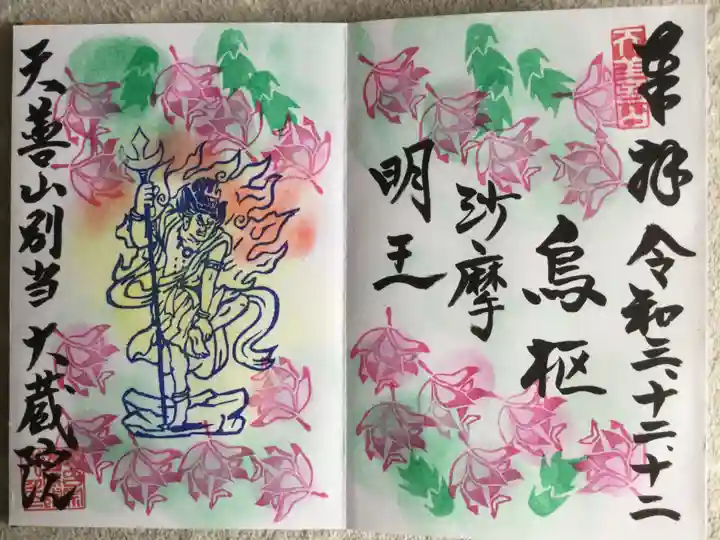 奉拝 令和三、十二、十二
烏枢
沙摩
明王
天善山別当 大蔵院